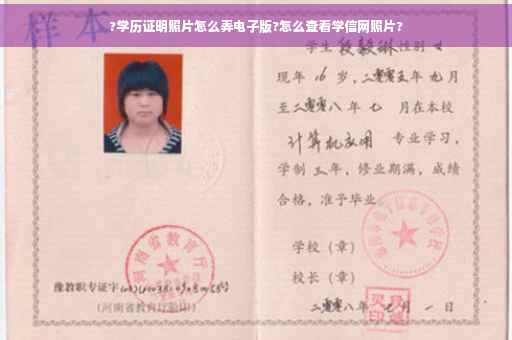 ?学历证明照片怎么弄电子版?怎么查看学信网照片?
样本
学生段毅琳性别女
现年16岁，二零零五年九月
至二零零八年七月在本校
计算机应用 专业学习，
学制三年，修业期满，成绩
合格，准予毕业
学校（章）
校长（章）
二零零八年七月一日
河南省教育厅
豫教职专证字
(河南省教育厅验印)